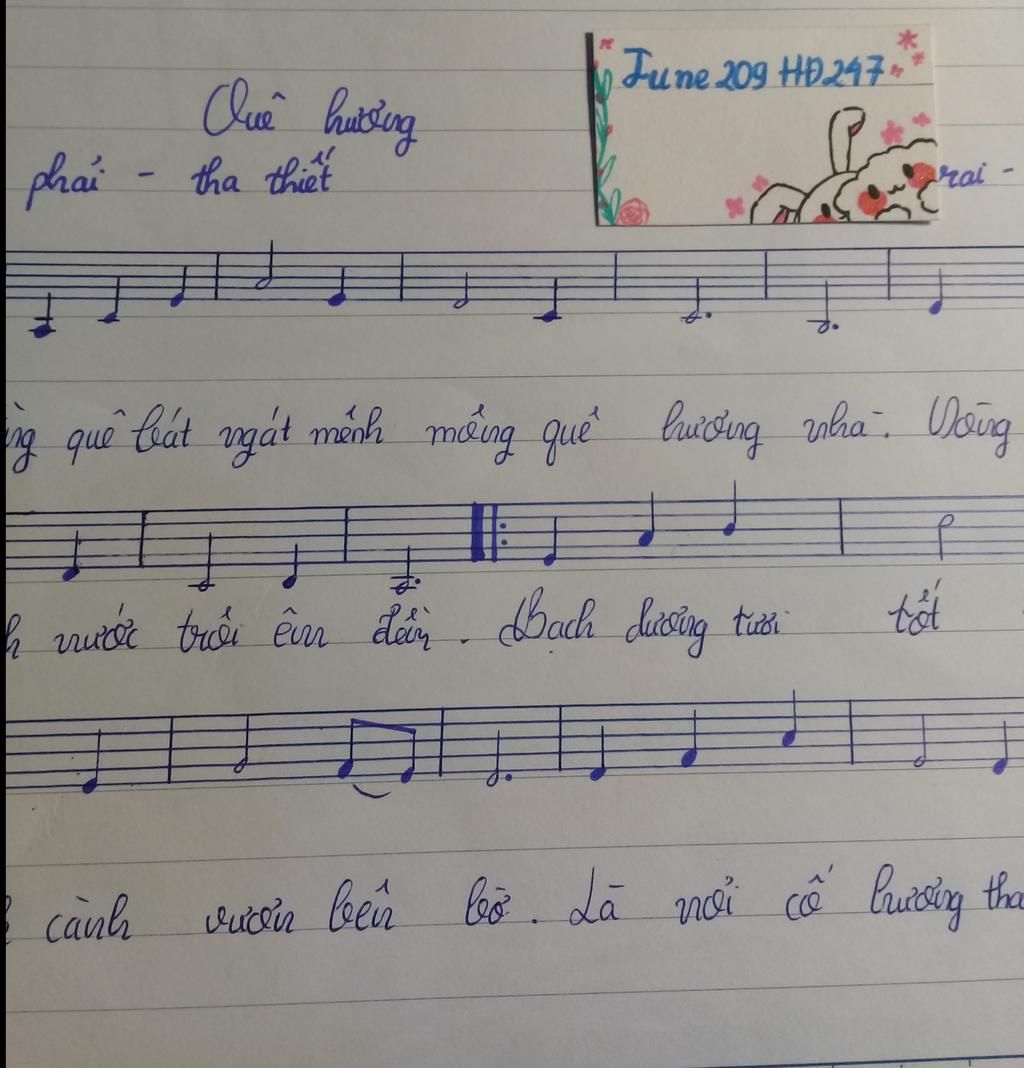 June 209 HD247
Quê hương
phải - tha thiết
rai -
quê bát ngát mênh mông quê hương nhà. Vòng
nước trôi êm đềm. Bạch dương tươi tốt
cành vươn bên bờ. Là nơi cố hương tha